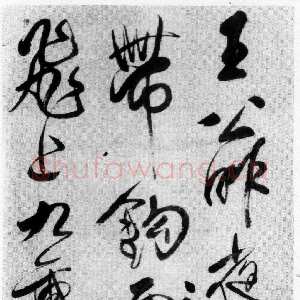 王公昨夜
帶鉤
飛上九重